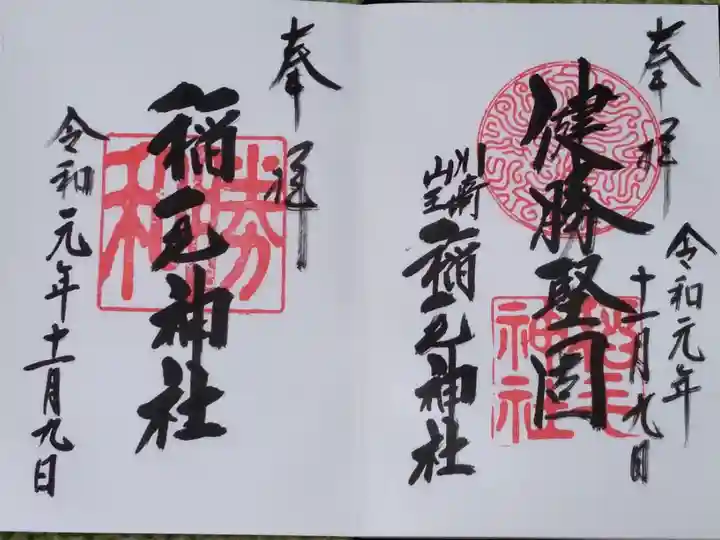 奉拝
健勝堅固
川崎
山王
稲毛神社
令和元年
十一月九日
稲毛
神社
奉拝
稲毛神社
令和元年十一月九日